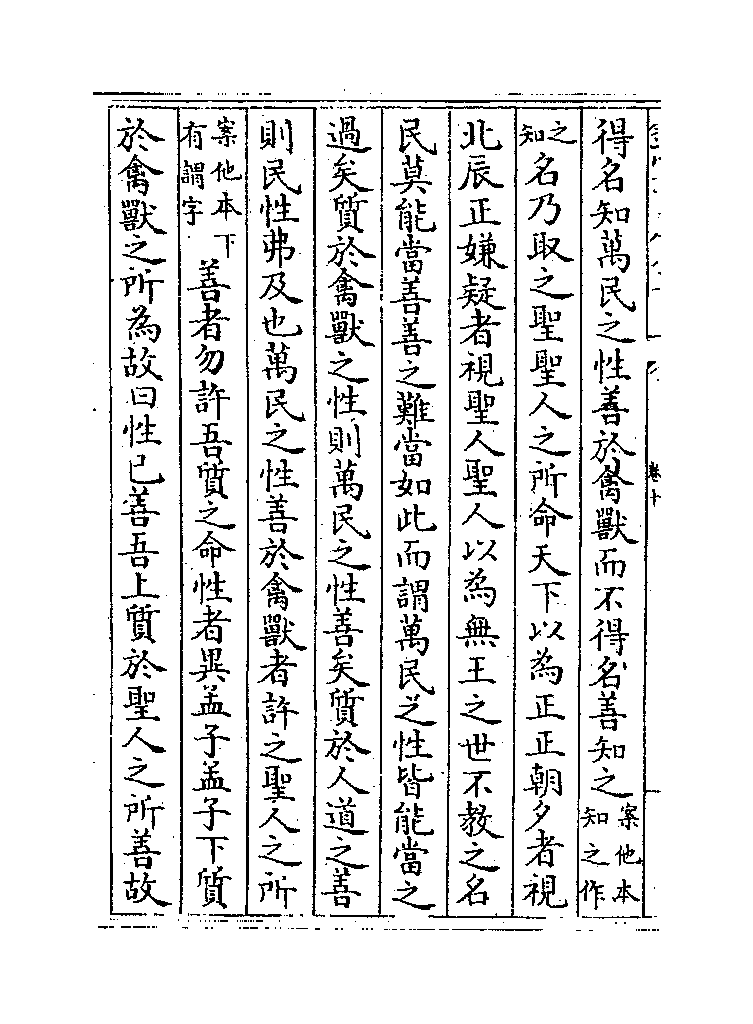 得名知萬民之性善於禽獸而不得名善知之案他本知之作
之知名乃取之聖聖人之所命天下以為正正朝夕者視
北辰正嫌疑者視聖人聖人以為無王之世不教之名
民莫能當善善之難當如此而謂萬民之性皆能當之
過矣質於禽獸之性則萬民之性善矣質於人道之善
則民性弗及也萬民之性善於禽獸者許之聖人之所
案他本下有謂字善者勿許吾質之命性者異孟子孟子下質
於禽獸之所為故曰性已善吾上質於聖人之所善故
卷十